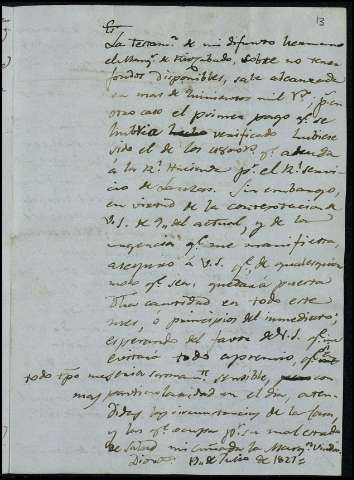 13
La Testam.ª de mi difunto hermano
el Marq.s de sobre no tener
fondos disponibles, sale alcanzada
en mas de quinientos mil r.s, p.s en
otro caso el primer pago q.e se
hubiera verificado hubiese
sido el de los q.e adeuda
á la R.l Hacienda p.r el R.l servi-
cio de Lanzas. Sin embargo,
en virtud de la contestacion de
V.S. de 9 del actual, y de la
urgencia q.e me manifiesta,
aseguro á V.S. q.e de qualesquier
modo q.e sea, quedará puesta
dha cantidad en todo este
mes, ó principios del inmediato;
esperando del favor de V.S. q.e me
evitará todo apremio, q.e en
todo tpo me seria sensible, con
mas particularidad en el dia, aten-
didas las circunstancias de la casa,
y las q.e ocupa p.r su mal estado
de salud mi cuñada la Marq.sa Viuda.
Dios &.ª 19 de Julio de 1827=